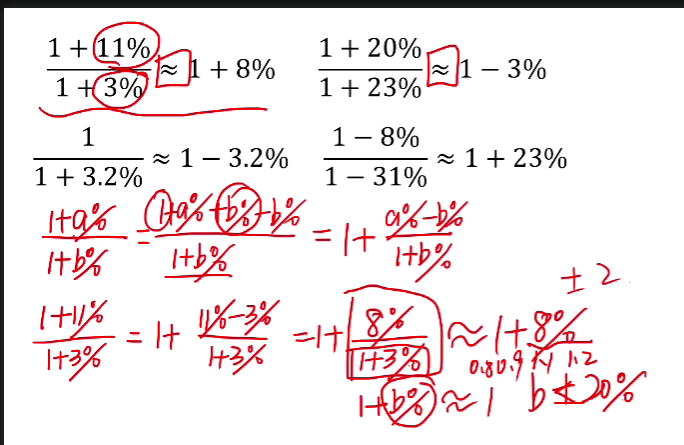 (1 + 11%)/(1 + 3%) ≈ 1 + 8%    (1 + 20%)/(1 + 23%) ≈ 1 − 3%
1/(1 + 3.2%) ≈ 1 − 3.2%    (1 − 8%)/(1 − 31%) ≈ 1 + 23%
(1+a%)/(1+b%) = (1+a%+b%-b%)/(1+b%) = 1+ (a%-b%)/(1+b%)
± 2
(1+11%)/(1+3%) = 1+ (11%-3%)/(1+3%) = 1+ 8%/(1+3%) ≈ 1+8%
0.8 0.9 1.1 1.2
1+b% ≈ 1    b ± 20%